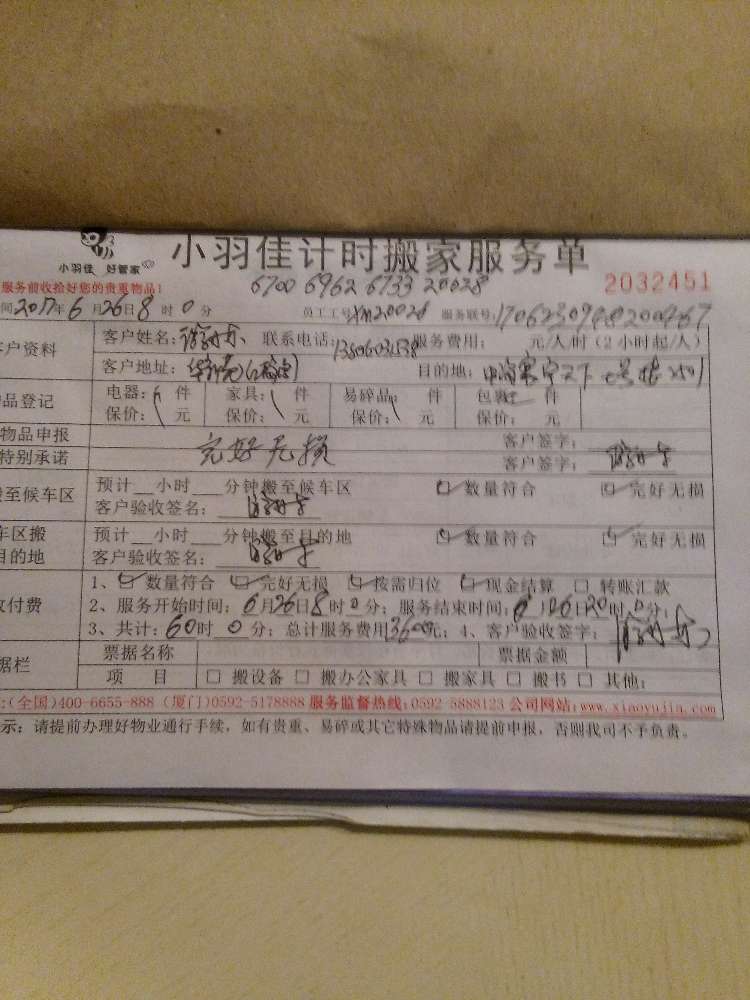 小羽佳 好管家 小羽佳计时搬家服务单
服务前收拾好您的贵重物品! 6700 6962 6733 20028 2032451
间2017年6月26日8时0分 员工工号:xm20026 服务联号:
户资料 客户姓名: 联系电话: 服务费用: 元/人/时(2小时起/人)
客户地址: 目的地:
品登记 电器: 件 家具: 件 易碎品: 件 包裹: 件
保价: 元 保价: 元 保价: 元 保价: 元
物品申报 客户签字:
特别承诺 完好无损 客户签字:
搬至候车区 预计__小时__分钟搬至候车区 ☑数量符合 ☑完好无损
客户验收签名:
车区搬 预计__小时__分钟搬至目的地 ☑数量符合 ☑完好无损
目的地 客户验收签名:
1、☑数量符合 ☑完好无损 ☑按需归位 ☑现金结算 □转账汇款
收付费 2、服务开始时间:6月26日8时0分;服务结束时间:6月26日20时0分;
3、共计:60时0分;总计服务费用3600元;4、客户验收签字:
据栏 票据名称 票据金额
项 目 □搬设备 □搬办公家具 □搬家具 □搬书 □其他:
:(全国)400-6655-888 (厦门)0592-5178888 服务监督热线:0592-5888123 公司网站:www.xiaoyujia.com
示: 请提前办理好物业通行手续,如有贵重、易碎或其它特殊物品请提前申报,否则我司不予负责。